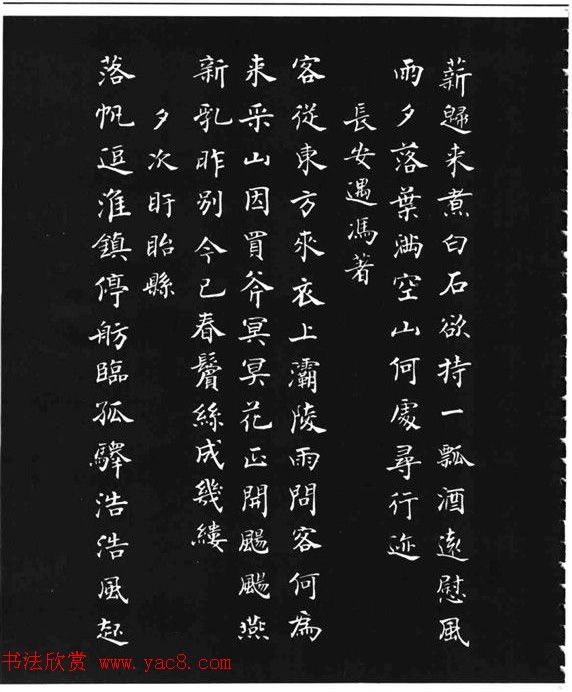 薪歸来煮白石欲持一瓢酒遠慰風
雨夕落葉滿空山何處尋行迹
長安遇馮著
客從東方來衣上灞陵雨問客何為
来采山因買斧冥冥花正開颺颺燕
新乳昨别今已春鬢絲成幾縷
夕次盱眙縣
落帆逗淮鎮停舫臨孤驛浩浩風起
书法欣赏 www.yac8.com